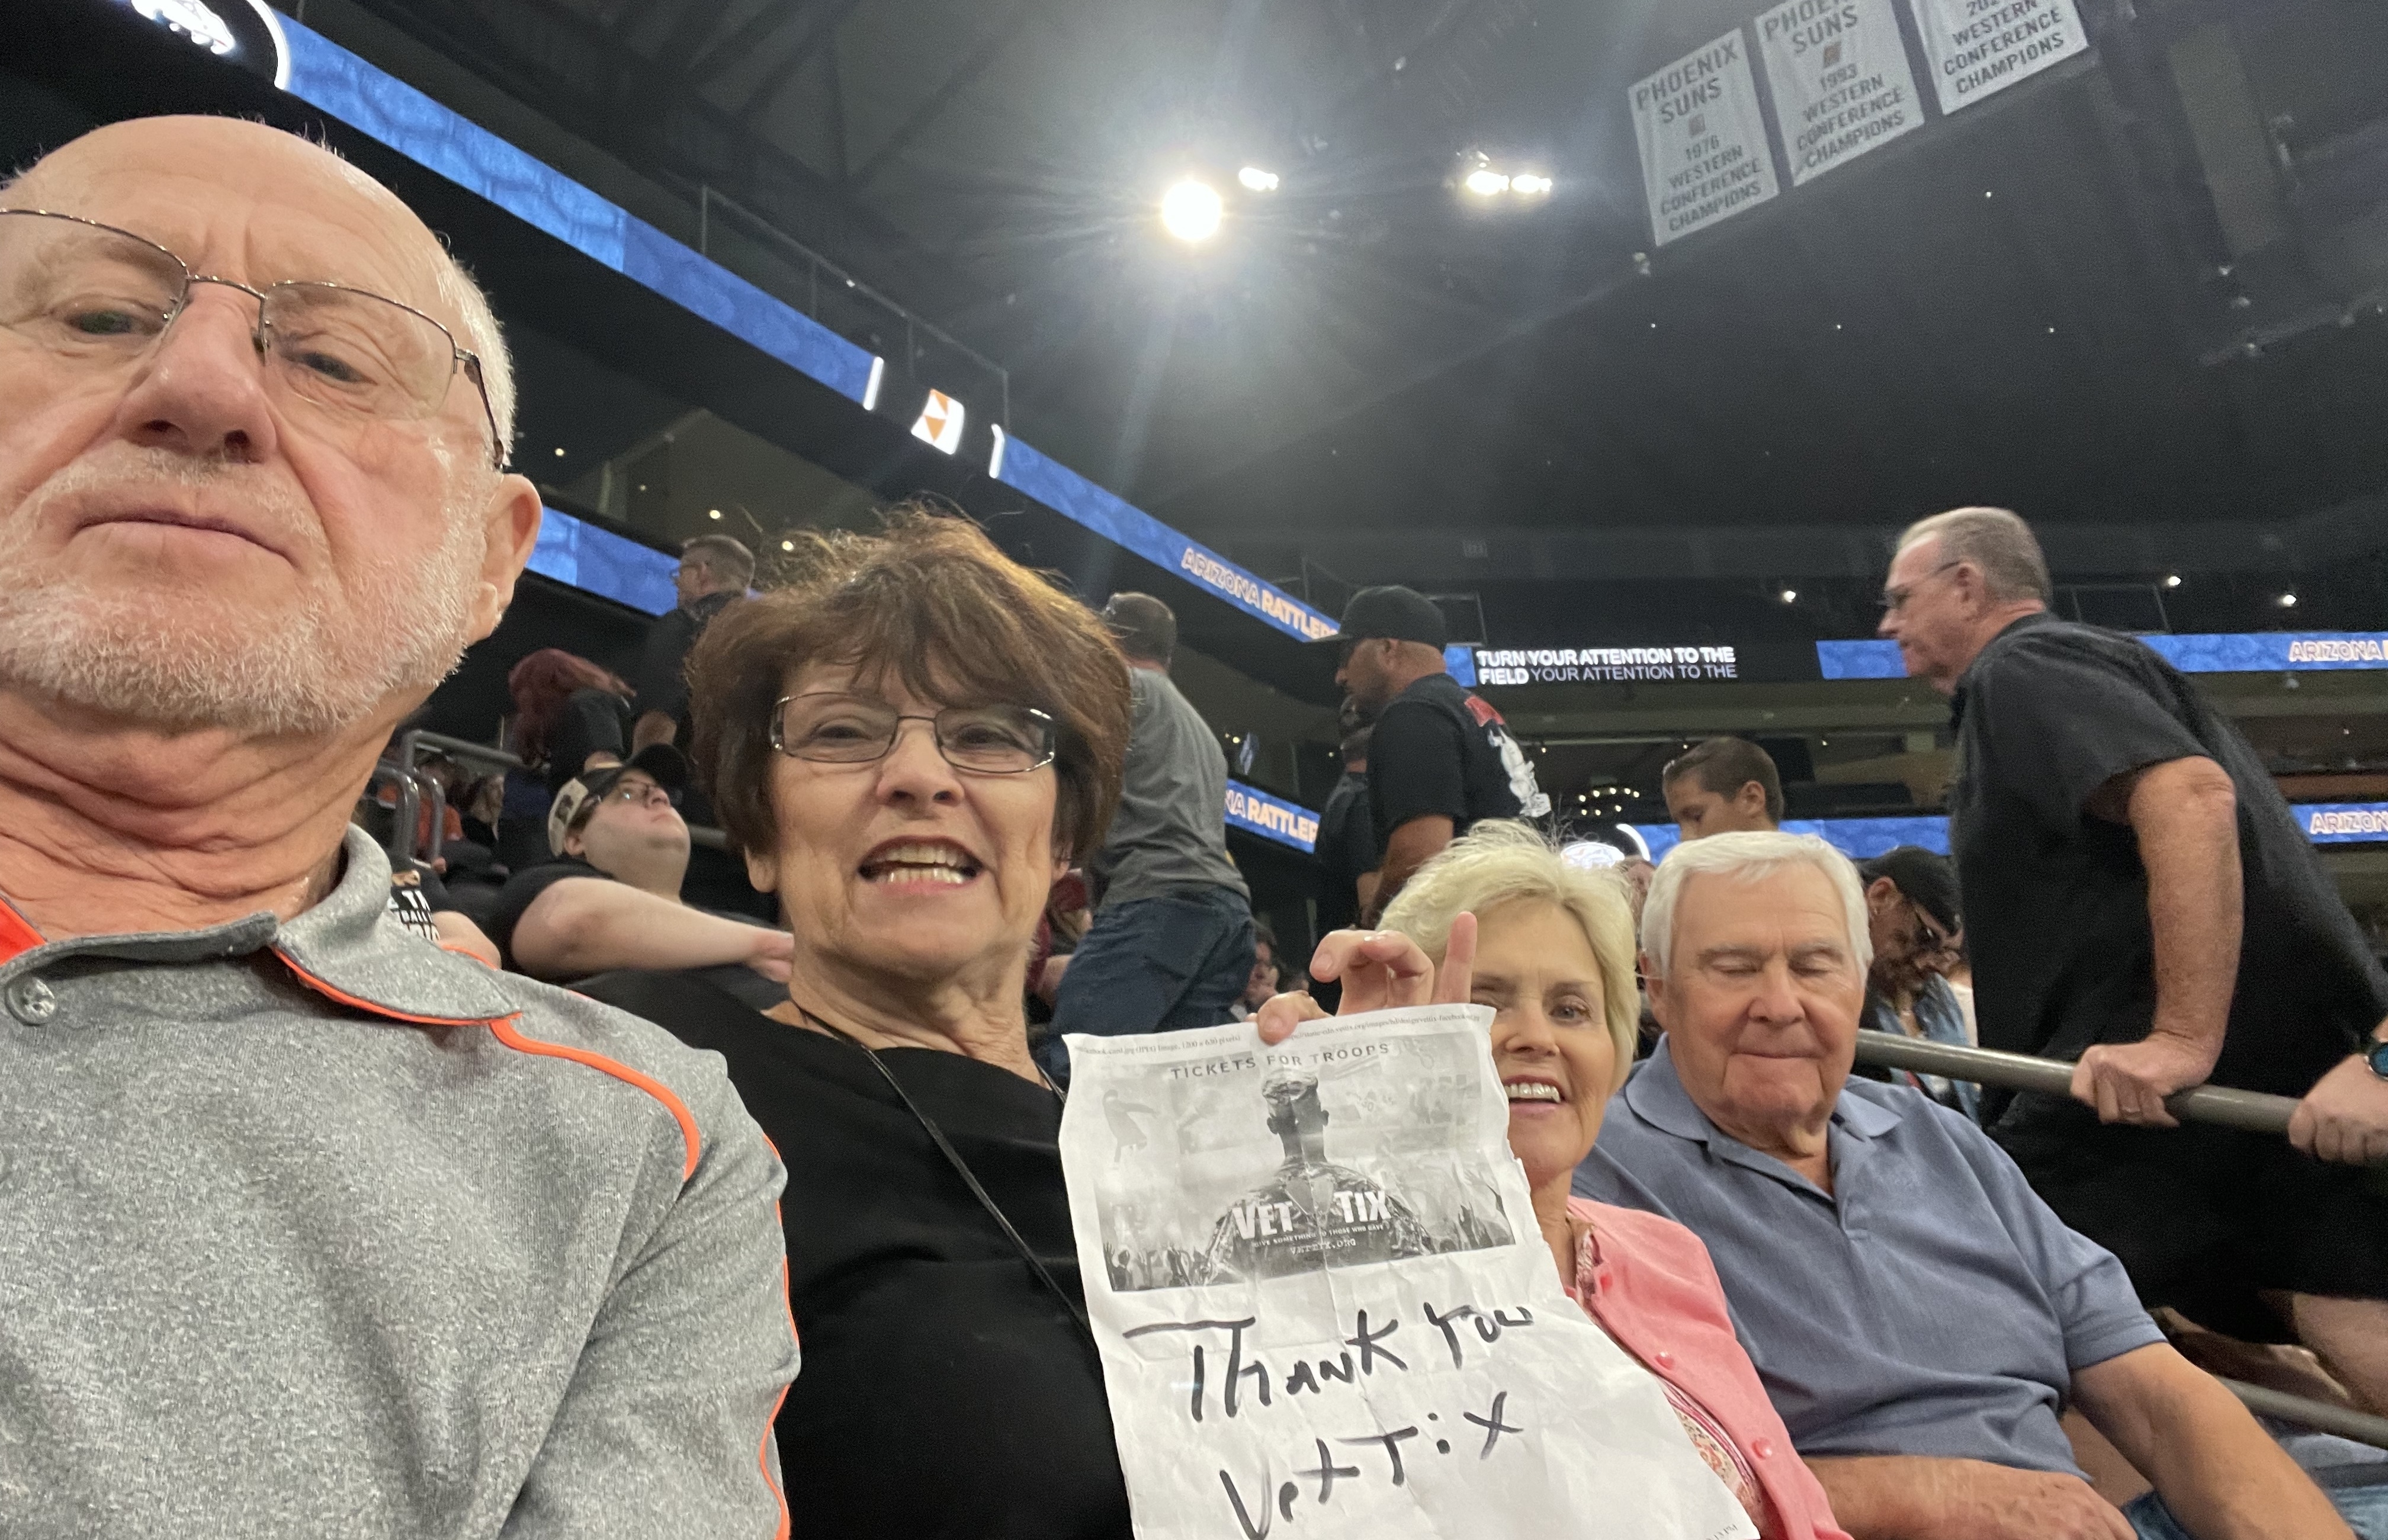 PHOENIX
SUNS
1976
WESTERN
CONFERENCE
CHAMPIONS
PHOENIX
SUNS
1993
WESTERN
CONFERENCE
CHAMPIONS
WESTERN
CONFERENCE
CHAMPIONS
ARIZONA RATTLERS
TURN YOUR ATTENTION TO THE
FIELD YOUR ATTENTION TO THE
ARIZONA
RATTLER
ARIZON
TICKETS FOR TROOPS
VET TIX
GIVE SOMETHING TO THOSE WHO GAVE
VETTIX.ORG
THANK YOU
VetTix